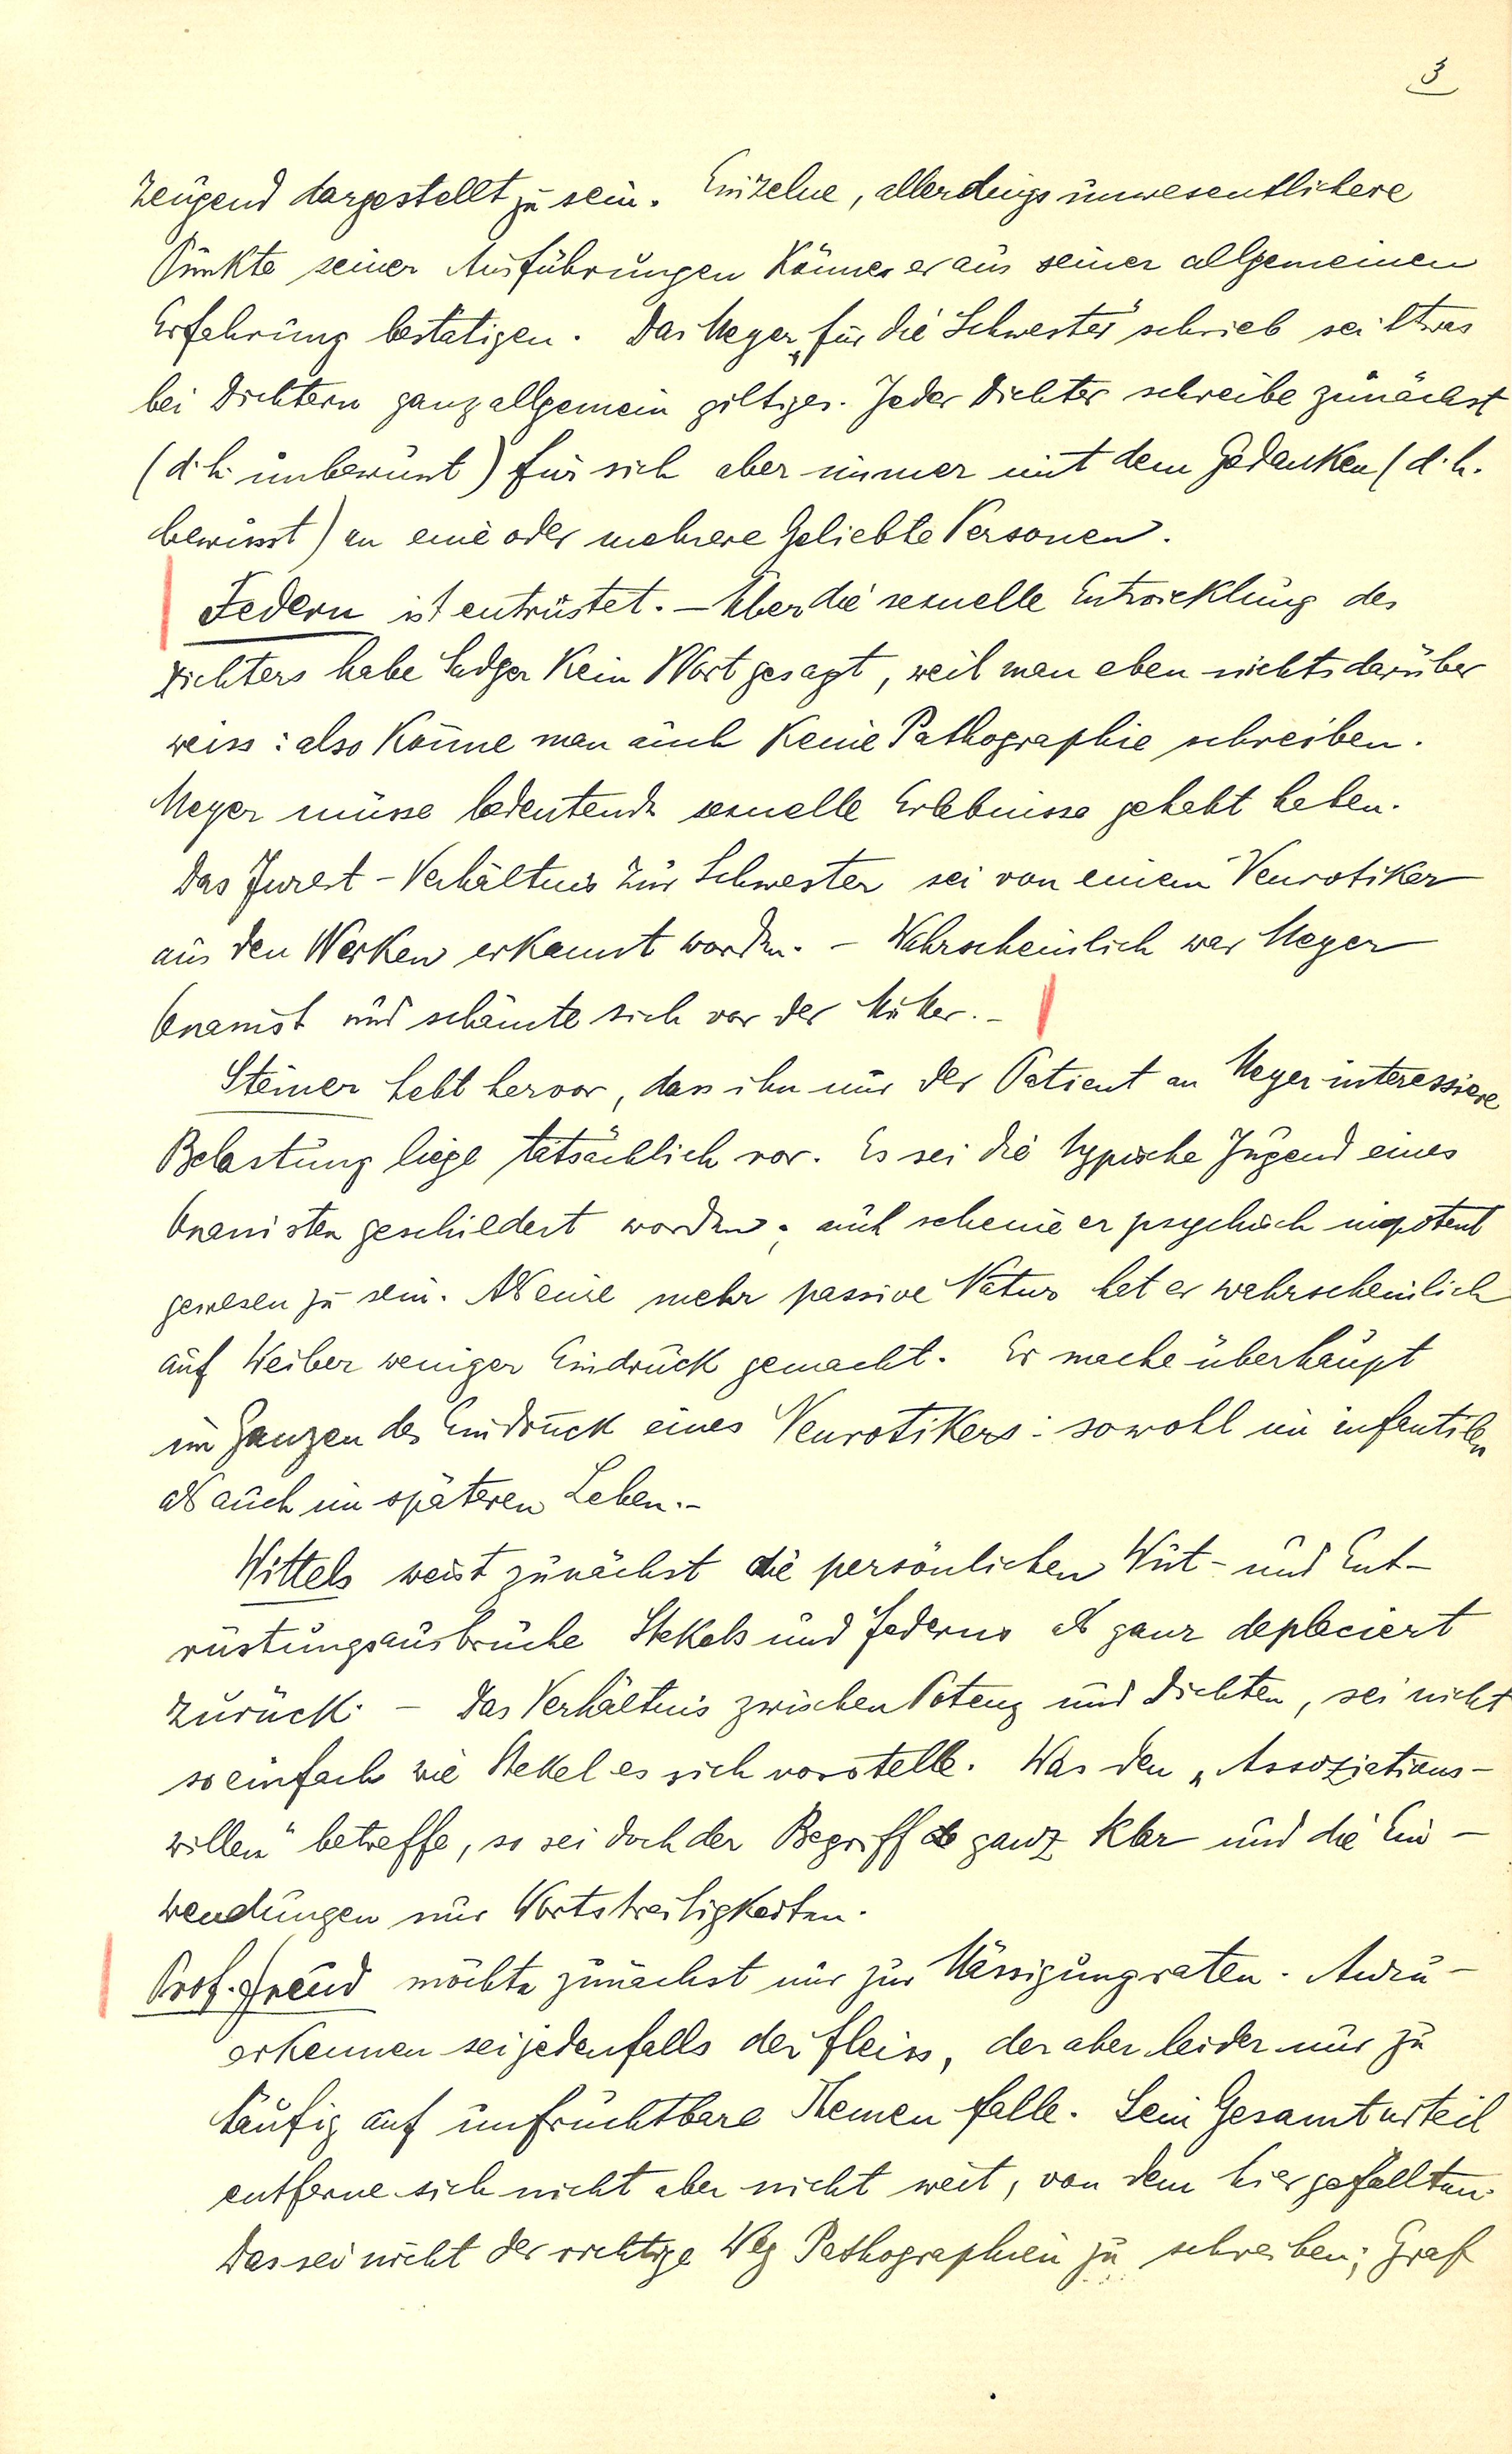 3
zeugend dargestellt zu sein. Einzelne, allerdings unwesentlichere
Punkte seiner Ausführungen könne er aus seiner allgemeinen
Erfahrung bestätigen. Das Meyer „für die Schwester" schrieb sei etwas
bei Dichtern ganz allgemein giltiges. Jeder Dichter schreibe zunächst
(d. h. unbewusst) für sich aber immer mit dem Gedanken (d. h.
bewusst) an eine oder mehrere geliebte Personen.
Federn ist entrüstet. – Über die sexuelle Entwicklung des
Dichters habe Sadger kein Wort gesagt, weil man eben nichts darüber
weiss: also könne man auch keine Pathographie schreiben.
Meyer müsse bedeutende sexuelle Erlebnisse gehabt haben.
Das Inzest-Verhältnis zur Schwester sei von einem Neurotiker
aus den Werken erkannt worden. – Wahrscheinlich war Meyer
Onanist und schämte sich vor der Mutter. –
Steiner hebt hervor, dass ihn nur der Patient an Meyer interessiere
Belastung liege tatsächlich vor. Es sei die typische Jugend eines
Onanisten geschildert worden; auch scheine er psychisch impotent
gewesen zu sein. Als eine mehr passive Natur hat er wahrscheinlich
auf Weiber weniger Eindruck gemacht. Er mache überhaupt
im Ganzen den Eindruck eines Neurotikers: sowohl im infantilen
als auch im späteren Leben. –
Wittels weist zunächst die persönlichen Wut- und Ent-
rüstungsausbrüche Stekels und Federns als ganz deplaciert
zurück. – Das Verhältnis zwischen Potenz und Dichten, sei nicht
so einfach wie Stekel es sich vorstelle. Was den „Assoziations-
willen" betreffe, so sei doch der Begriff ganz klar und die Ein-
wendungen nur Wortstreitigkeiten.
Prof. Freud möchte zunächst nur zur Mässigung raten. Anzu-
erkennen sei jedenfalls der Fleiss, der aber leider nur zu
häufig auf unfruchtbare Themen falle. Sein Gesamturteil
entferne sich nicht aber nicht weit, von dem hier gefällten.
Das sei nicht der richtige Weg Pathographien zu schreiben; Graf